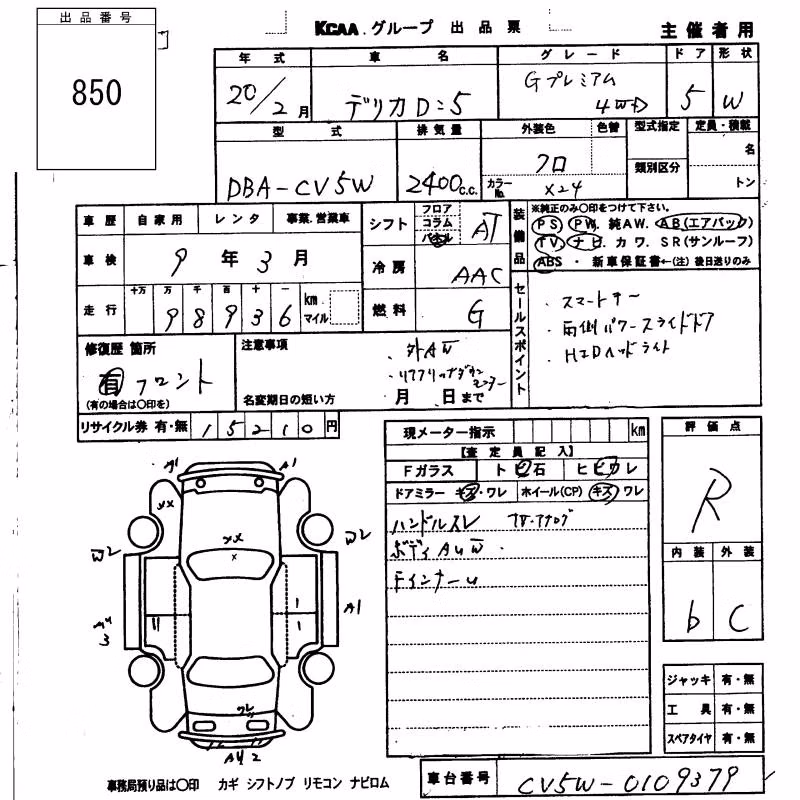 出品番号
850
KCAA.グループ 出品票
主催者用
年式 車名 グレード ドア 形状
20/2月 デリカD:5 Gプレミアム 4WD 5 W
型式 排気量 外装色 色替 型式指定 定員・積載
類別区分 名
DBA-CV5W 2400c.c. クロ カラーNo. X24 トン
車歴 自家用 レンタ 事業.営業車
車検 9年3月
走行 十万 万 千 百 十 一 km マイル
98936
シフト フロア コラム パネル AT
冷房 AAC
燃料 G
装備品 ※純正のみ○印をつけて下さい。
PS PW. 純AW. AB(エアバック)
TV. ナビ. カワ. SR(サンルーフ)
ABS ・ 新車保証書←(注)後日送りのみ
セールスポイント
・スマートキー
・両側パワースライドドア
・HIDヘッドライト
修復歴 箇所
有 フロント
(有の場合は○印を)
注意事項
・外AW
名変期日の短い方 月 日まで
リサイクル券 有・無 15210円
現メーター指示 km
【査定員記入】
Fガラス トビ石 ヒビワレ
ドアミラー キズ・ワレ ホイール(CP) キズワレ
ハンドルスレ
ボディAUW.
評価点
R
内装 外装
b C
A1 A1
XX
XX
×
W2 W2
A1
3
ワレ
2
ジャッキ 有・無
工具 有・無
スペアタイヤ 有・無
事務局預り品は○印 カギ シフトノブ リモコン ナビロム
車台番号 CV5W-0109379